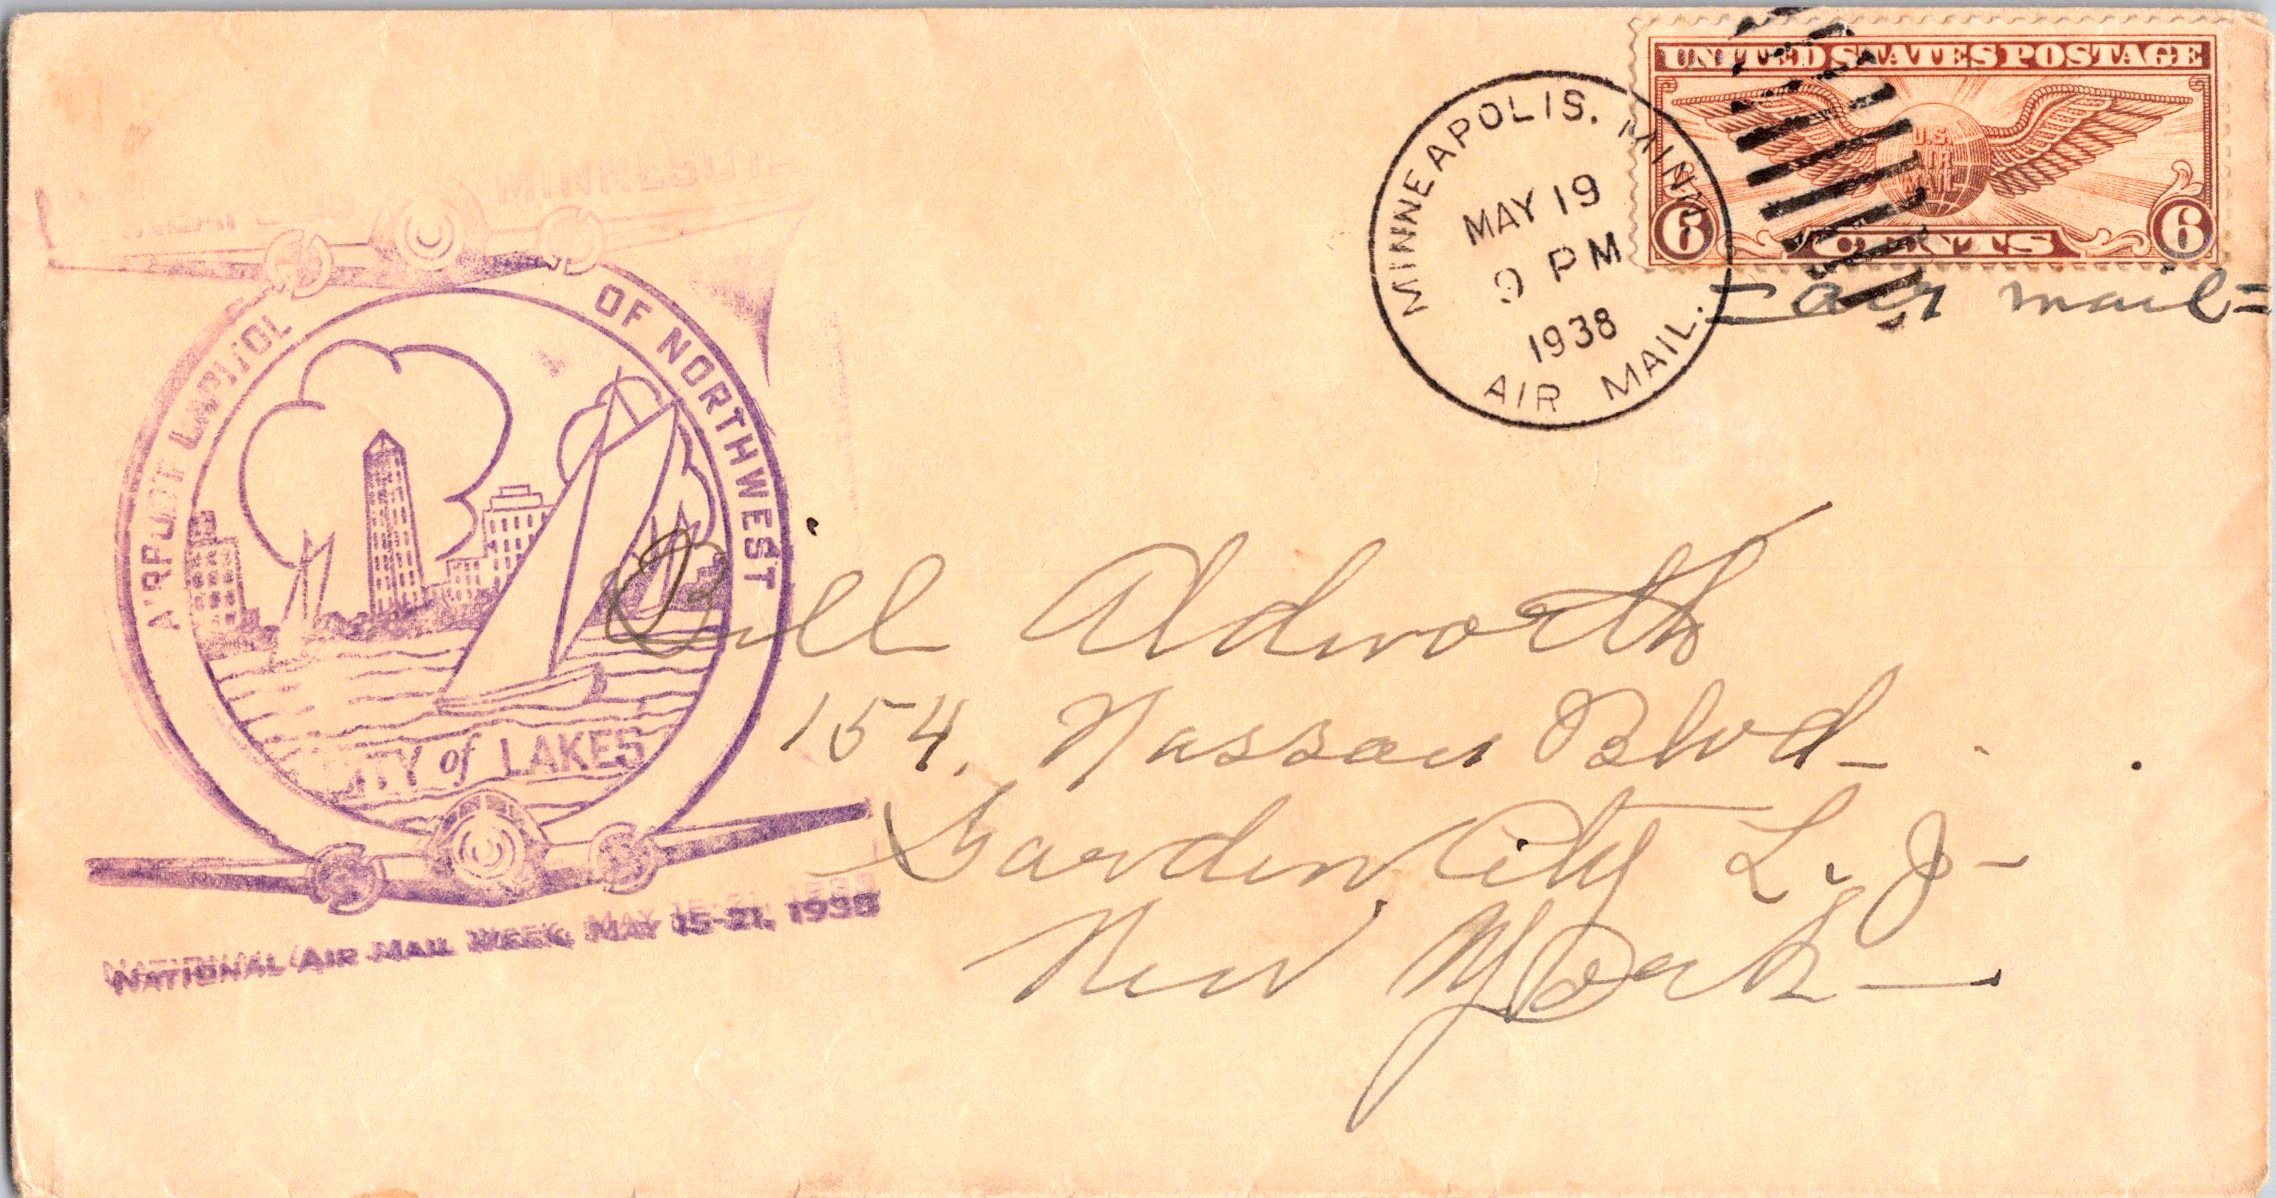 UNITED STATES POSTAGE
U.S.
AIR
MAIL
6 CENTS 6
= air mail =
MINNEAPOLIS, MINN.
MAY 19
9 PM
1938
AIR MAIL.
MINNESOTA
AIRPORT CAPITOL OF NORTHWEST
CITY of LAKES
NATIONAL AIR MAIL WEEK, MAY 15-21, 1938
Bill Aldworth
154. Nassau Blvd -
Garden City L. I -
New York -